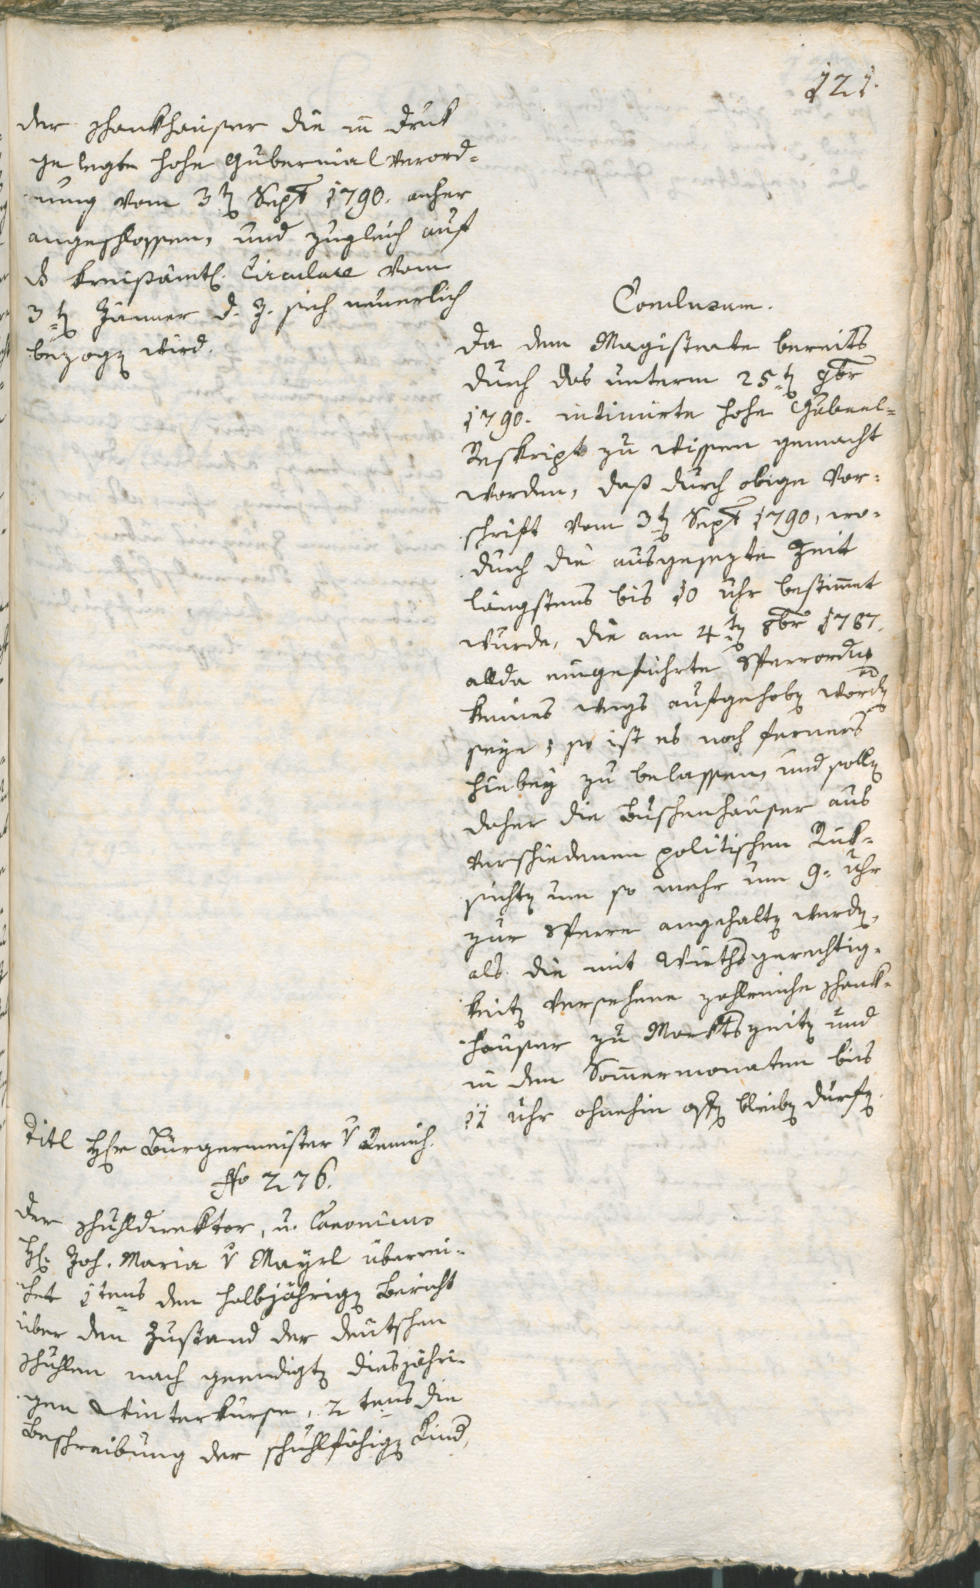 121.
der Schankhäuser die in Druk
gelegte hohe Gubernial Verord-
nung vom 3t Sept 1790. anher
angeschlossen, und zugleich auf
ds kreisämtl. Circulare vom
3t Jänner d. J. sich neuerlich
bezogen wird.
Conclusum.
Da dem Magistrate bereits
durch das unterm 25t 9br
1790. intimirte hohe Gubernl-
Reskript zu wissen gemacht
worden, daß durch obige Vor-
schrift vom 3t Sept 1790, wo-
durch die ausgesezte Zeit
längstens bis 10 Uhr bestimmt
wurde, die am 4t 8br 1787.
allda eingeführte Sperrordng
keines wegs aufgehoben worden
seye; so ist es noch ferners
hiebey zu belassen, und sollen
daher die Buschenhäuser aus
verschiedenen politischen Rük-
sichten um so mehr um 9. Uhr
zur Sperre angehalten werden,
als die mit Wirthsgerechtig-
keiten versehene zahlreiche Schank-
häuser zu Marktszeiten und
in den Sommermonaten bis
11 Uhr ohnehin offen bleiben dürfen.
Titl Hr Bürgermeister v
No 276.
Der Schuldirektor, u. Canonicus
H. Joh. Maria v Mayrl überrei-
chet 1tens den halbjährigen Bericht
über den Zustand der deutschen
Schulen nach geendigten diesjähri-
gen Winterkurse, 2tens die
Beschreibung der schuhlfähigen Kind,